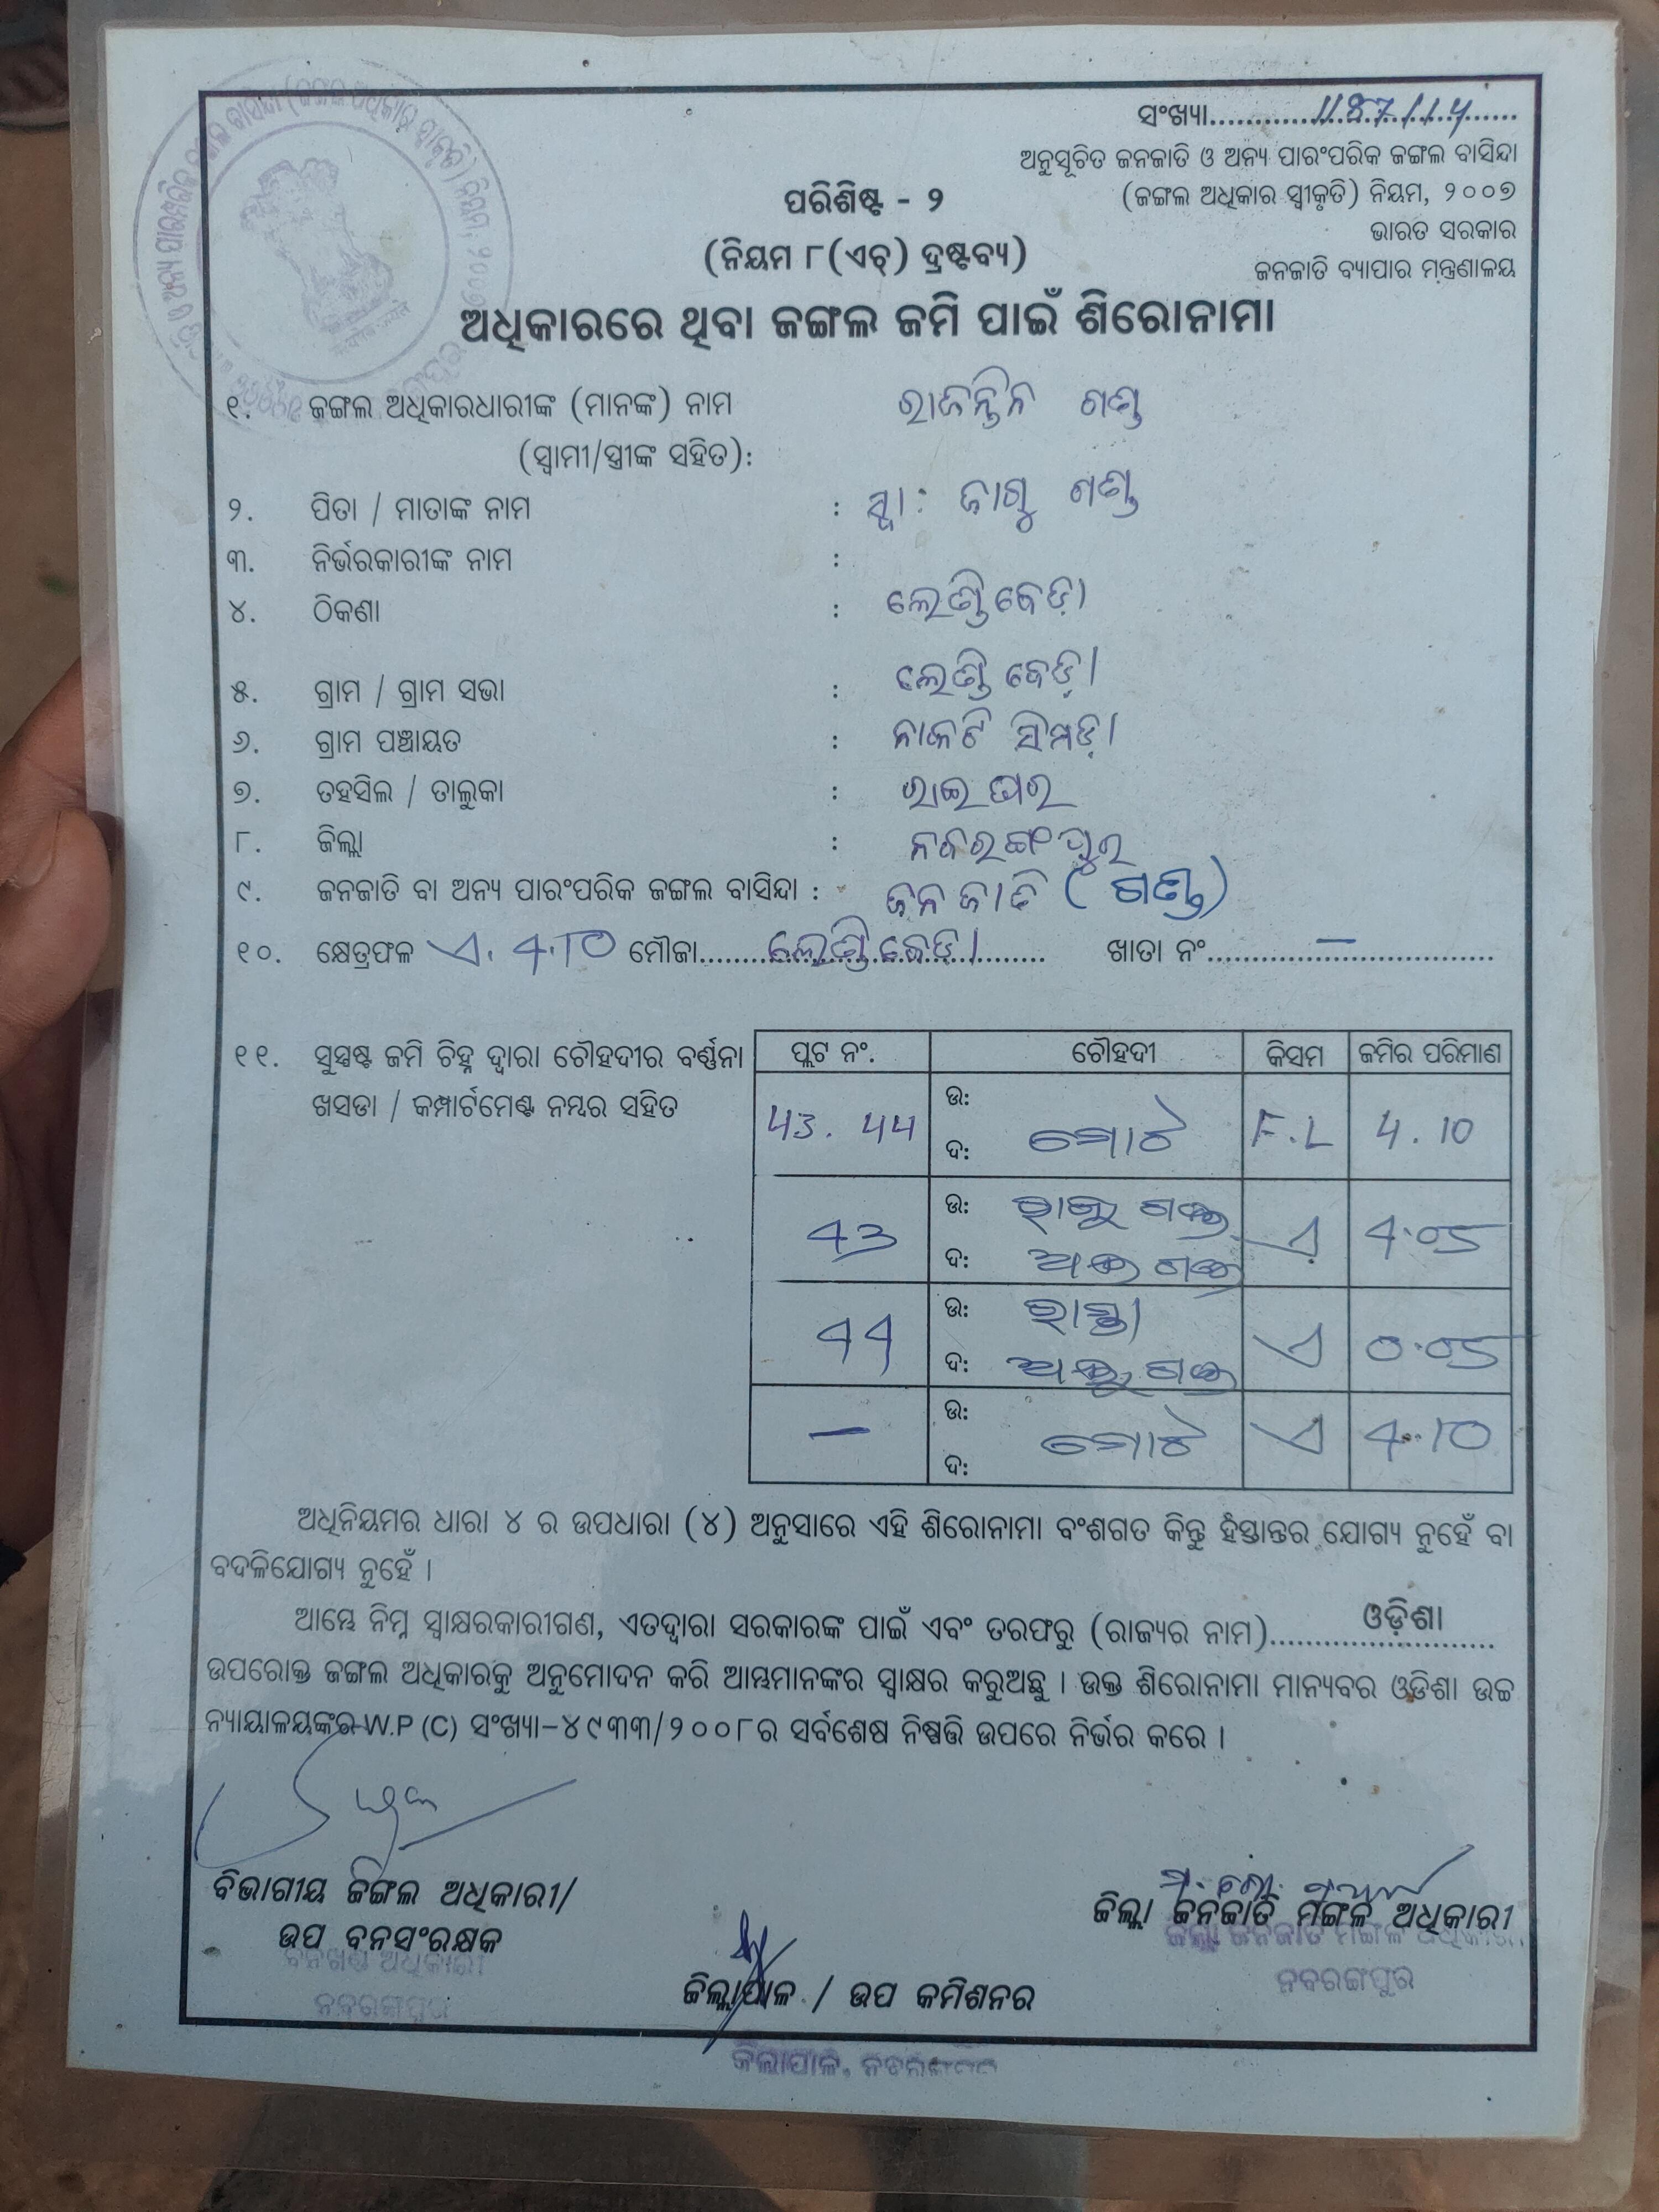 ସଂଖ୍ୟା.......1187/14.......
ଅନୁସୂଚିତ ଜନଜାତି ଓ ଅନ୍ୟ ପାରଂପରିକ ଜଙ୍ଗଲ ବାସିନ୍ଦା
(ଜଙ୍ଗଲ ଅଧିକାର ସ୍ୱୀକୃତି) ନିୟମ, ୨୦୦୭
ଭାରତ ସରକାର
ଜନଜାତି ବ୍ୟାପାର ମନ୍ତ୍ରଣାଳୟ
ପରିଶିଷ୍ଟ - ୨
(ନିୟମ ୮(ଏଚ୍) ଦ୍ରଷ୍ଟବ୍ୟ)
ଅଧିକାରରେ ଥିବା ଜଙ୍ଗଲ ଜମି ପାଇଁ ଶିରୋନାମା
୧. ଜଙ୍ଗଲ ଅଧିକାରଧାରୀଙ୍କ (ମାନଙ୍କ) ନାମ ଗଣ୍ଡ
(ସ୍ୱାମୀ/ସ୍ତ୍ରୀଙ୍କ ସହିତ):
୨. ପିତା / ମାତାଙ୍କ ନାମ : ସ୍ୱା: ଜାଗୁ ଗଣ୍ଡ
୩. ନିର୍ଭରକାରୀଙ୍କ ନାମ :
୪. ଠିକଣା : ଲେଣ୍ଡିବେଡ଼ା
୫. ଗ୍ରାମ / ଗ୍ରାମ ସଭା : ଲେଣ୍ଡିବେଡ଼ା
୬. ଗ୍ରାମ ପଞ୍ଚାୟତ : ନାକଟି ସିମଡ଼ା
୭. ତହସିଲ / ତାଲୁକା : ରାଇଘର
୮. ଜିଲ୍ଲା : ନବରଙ୍ଗପୁର
୯. ଜନଜାତି ବା ଅନ୍ୟ ପାରଂପରିକ ଜଙ୍ଗଲ ବାସିନ୍ଦା : ଜନଜାତି (ଗଣ୍ଡ)
୧୦. କ୍ଷେତ୍ରଫଳ ଏ. 4.10 ମୌଜା.......ଲେଣ୍ଡିବେଡ଼ା....... ଖାତା ନଂ.......—.......
୧୧. ସୁସ୍ପଷ୍ଟ ଜମି ଚିହ୍ନ ଦ୍ୱାରା ଚୌହଦୀର ବର୍ଣ୍ଣନା
ଖସଡା / କମ୍ପାର୍ଟମେଣ୍ଟ ନମ୍ବର ସହିତ
ପ୍ଲଟ ନଂ. ଚୌହଦୀ କିସମ ଜମିର ପରିମାଣ
43. 44 ଉ: ଦ: ମୋଟ F.L 4.10
43 ଉ: ରାଜୁ ଗଣ୍ଡ ଏ 4.05
ଦ: ଗଣ୍ଡ
44 ଉ: ରାସ୍ତା ଏ 0.05
ଦ: ଗଣ୍ଡ
— ଉ: ଦ: ମୋଟ ଏ 4.10
ଅଧିନିୟମର ଧାରା ୪ ର ଉପଧାରା (୪) ଅନୁସାରେ ଏହି ଶିରୋନାମା ବଂଶଗତ କିନ୍ତୁ ହସ୍ତାନ୍ତର ଯୋଗ୍ୟ ନୁହେଁ ବା
ବଦଳିଯୋଗ୍ୟ ନୁହେଁ ।
ଆମ୍ଭେ ନିମ୍ନ ସ୍ୱାକ୍ଷରକାରୀଗଣ, ଏତଦ୍ଦ୍ୱାରା ସରକାରଙ୍କ ପାଇଁ ଏବଂ ତରଫରୁ (ରାଜ୍ୟର ନାମ).......ଓଡ଼ିଶା.......
ଉପରୋକ୍ତ ଜଙ୍ଗଲ ଅଧିକାରକୁ ଅନୁମୋଦନ କରି ଆମ୍ଭମାନଙ୍କର ସ୍ୱାକ୍ଷର କରୁଅଛୁ । ଉକ୍ତ ଶିରୋନାମା ମାନ୍ୟବର ଓଡିଶା ଉଚ୍ଚ
ନ୍ୟାୟାଳୟଙ୍କର W.P (C) ସଂଖ୍ୟା–୪୯୩୩/୨୦୦୮ର ସର୍ବଶେଷ ନିଷ୍ପତ୍ତି ଉପରେ ନିର୍ଭର କରେ ।
ବିଭାଗୀୟ ଜଙ୍ଗଲ ଅଧିକାରୀ/
ଉପ ବନସଂରକ୍ଷକ
ବନଖଣ୍ଡ ଅଧିକାରୀ
ନବରଙ୍ଗପୁର
ଜିଲ୍ଲାପାଳ / ଉପ କମିଶନର
ଜିଲ୍ଲାପାଳ, ନବରଙ୍ଗପୁର
ଜିଲ୍ଲା ଜନଜାତି ମଙ୍ଗଳ ଅଧିକାରୀ
ଜିଲ୍ଲା ଜନଜାତି ମଙ୍ଗଳ ଅଧିକାରୀ
ନବରଙ୍ଗପୁର